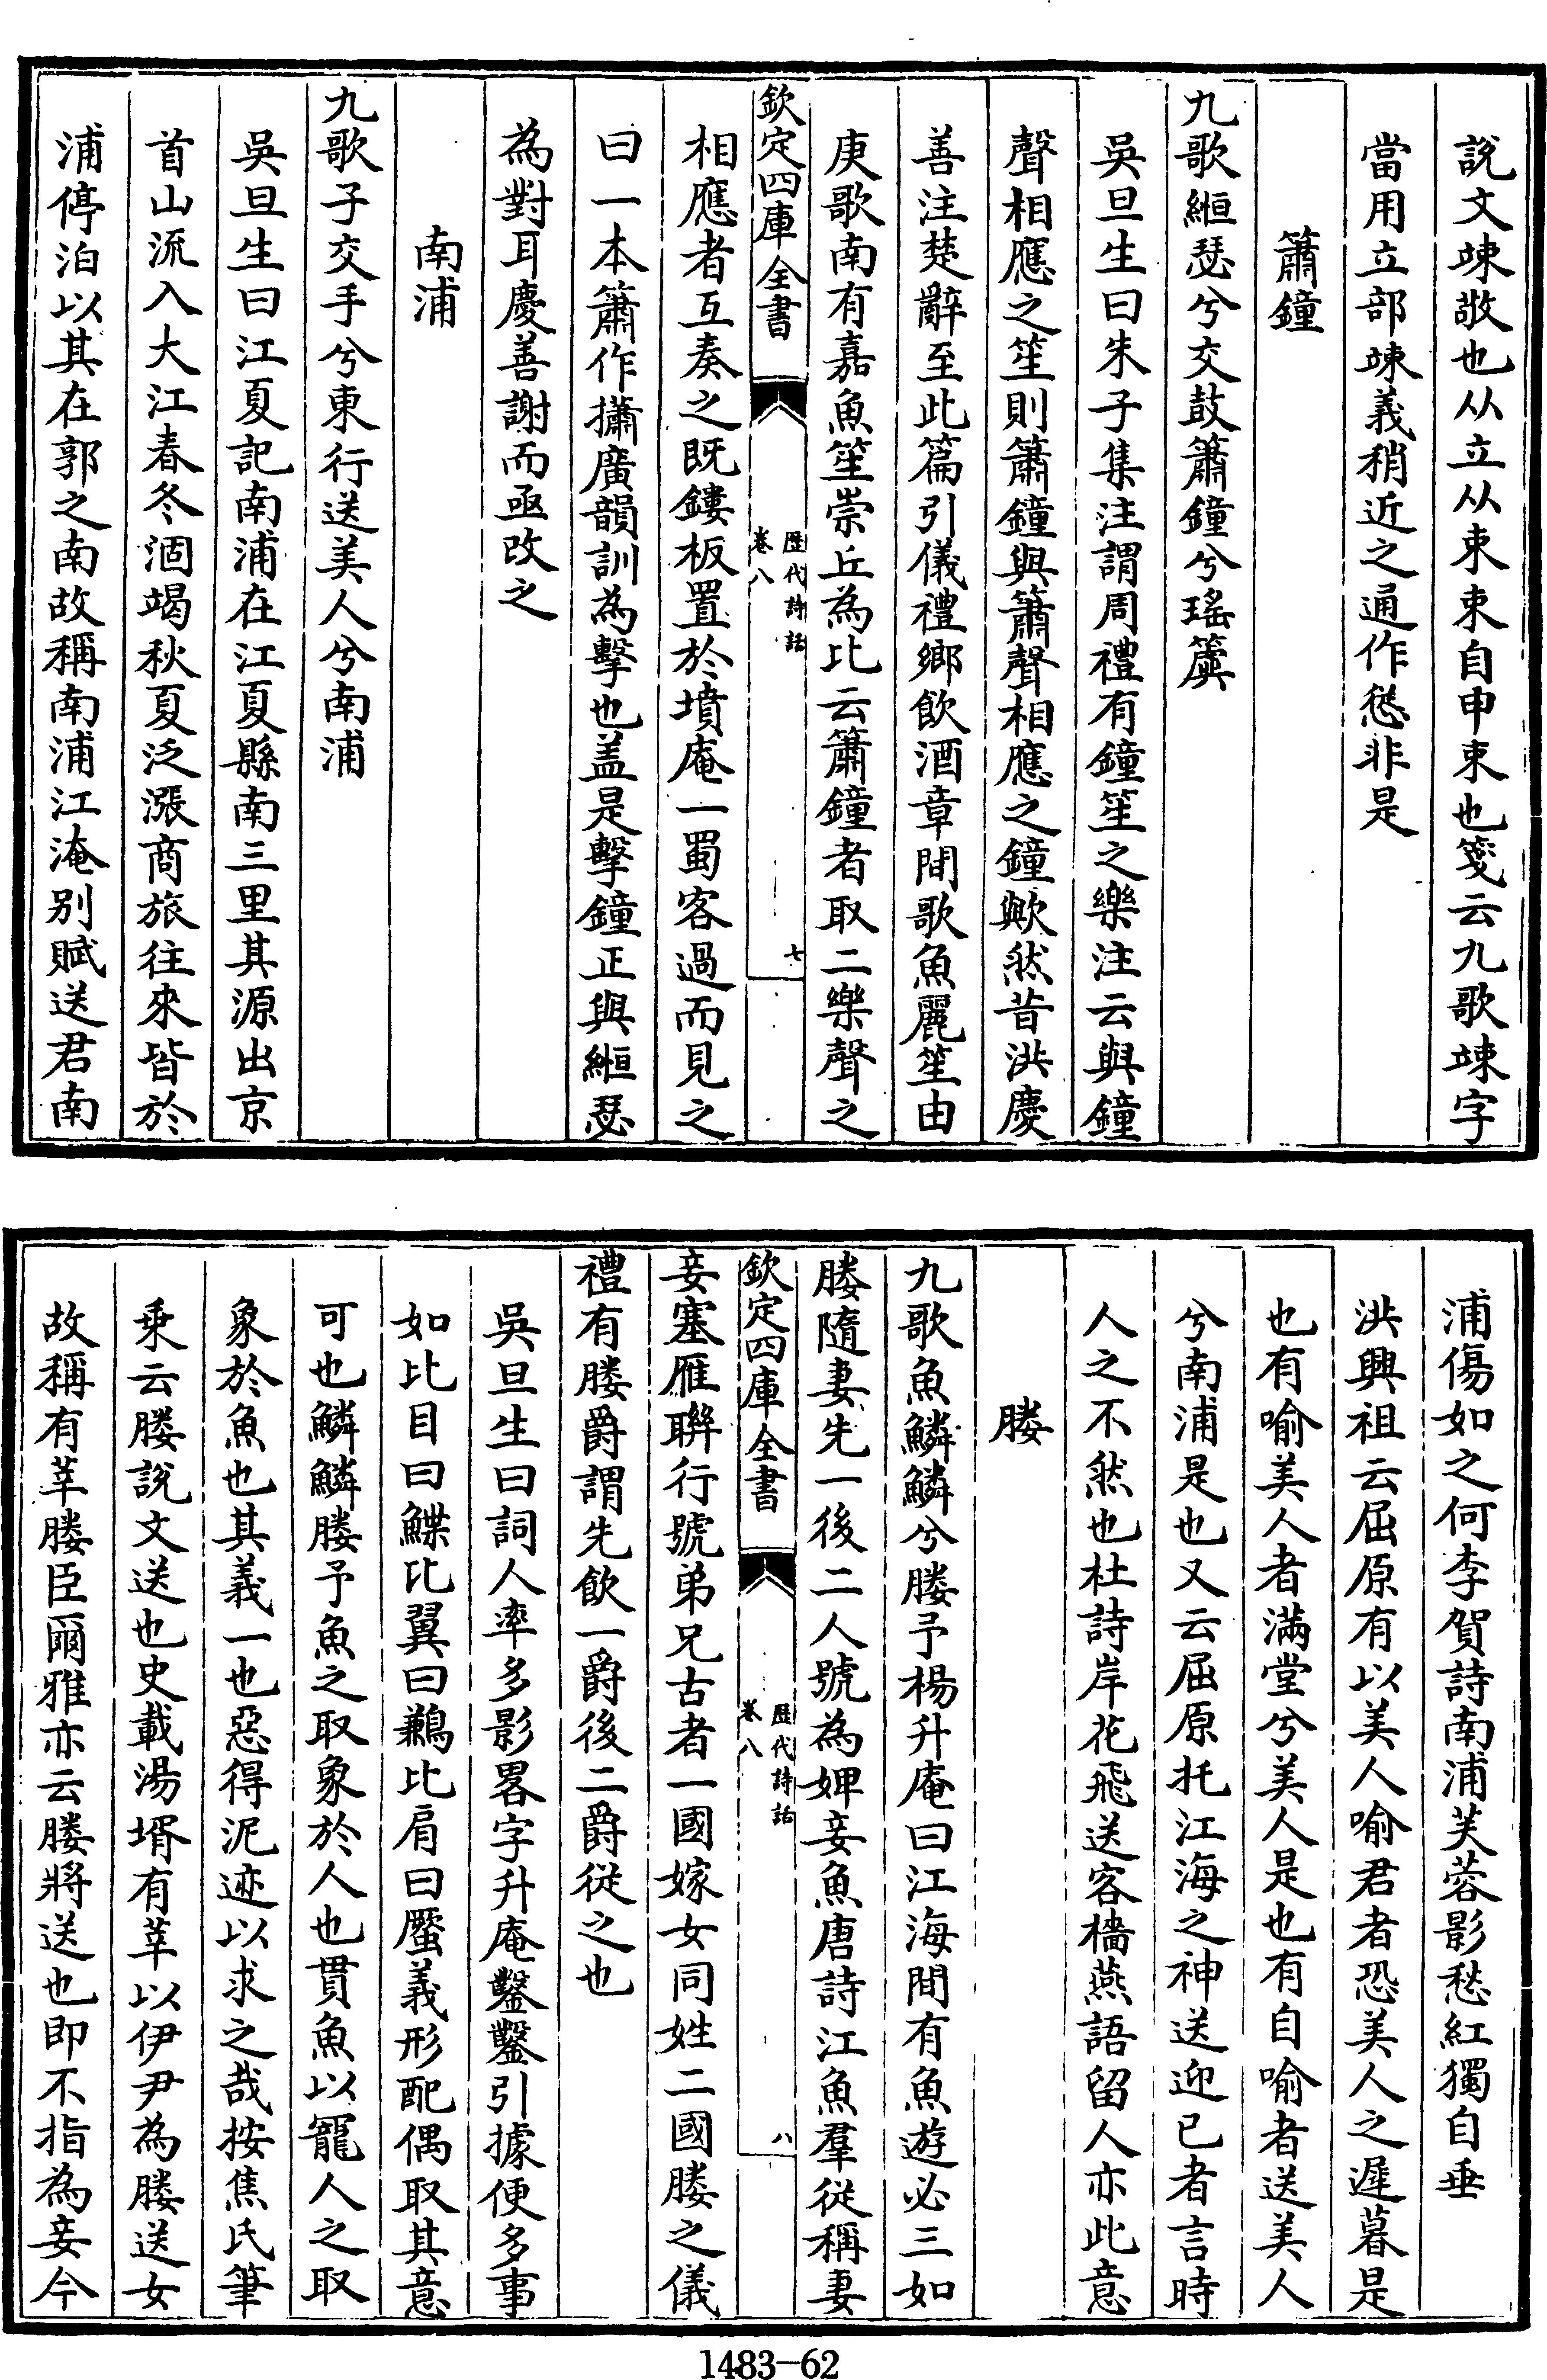 說文竦敬也从立从束束自申束也箋云九歌竦字
當用立部竦義稍近之通作慫非是
簫鐘
九歌縆瑟兮交鼓簫鐘兮瑤簴
吳旦生曰朱子集注謂周禮有鐘笙之樂注云與鐘
聲相應之笙則簫鐘與簫聲相應之鐘歟然昔洪慶
善注楚辭至此篇引儀禮鄉飲酒章間歌魚麗笙由
庚歌南有嘉魚笙崇丘為比云簫鐘者取二樂聲之
欽定四庫全書
歷代詩話
卷八
七
相應者互奏之既鏤板置於墳庵一蜀客過而見之
曰一本簫作㩋廣韻訓為擊也盖是擊鐘正與縆瑟
為對耳慶善謝而亟改之
南浦
九歌子交手兮東行送美人兮南浦
吳旦生曰江夏記南浦在江夏縣南三里其源出京
首山流入大江春冬涸竭秋夏泛漲商旅往來皆於
浦停泊以其在郭之南故稱南浦江淹別賦送君南
浦傷如之何李賀詩南浦芙蓉影愁紅獨自垂
洪興祖云屈原有以美人喻君者恐美人之遲暮是
也有喻美人者滿堂兮美人是也有自喻者送美人
兮南浦是也又云屈原托江海之神送迎已者言時
人之不然也杜詩岸花飛送客檣燕語留人亦此意
媵
九歌魚鱗鱗兮媵予楊升庵曰江海間有魚遊必三如
媵隨妻先一後二人號為婢妾魚唐詩江魚羣從稱妻
欽定四庫全書
歷代詩話
卷八
八
妾塞雁聯行號弟兄古者一國嫁女同姓二國媵之儀
禮有媵爵謂先飲一爵後二爵從之也
吳旦生曰詞人率多影畧字升庵鑿鑿引據便多事
如比目曰鰈比翼曰鶼比肩曰蟨義形配偶取其意
可也鱗鱗媵予魚之取象於人也貫魚以寵人之取
象於魚也其義一也惡得泥迹以求之哉按焦氏筆
乘云媵說文送也史載湯壻有莘以伊尹為媵送女
故稱有莘媵臣爾雅亦云媵將送也即不指為妾今
1483-62